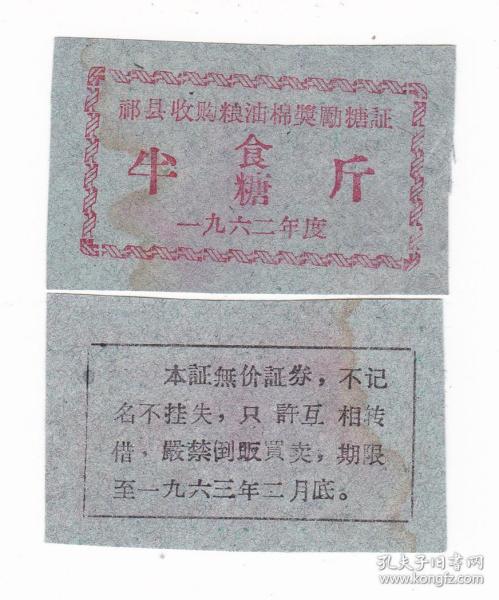 祁县收购粮油棉獎勵糖証
半 食糖 斤
一九六二年度
本証無价証券，不记
名不挂失，只許互相转
借，嚴禁倒販買卖，期限
至一九六三年二月底。
孔夫子旧书网
www.kongfz.com